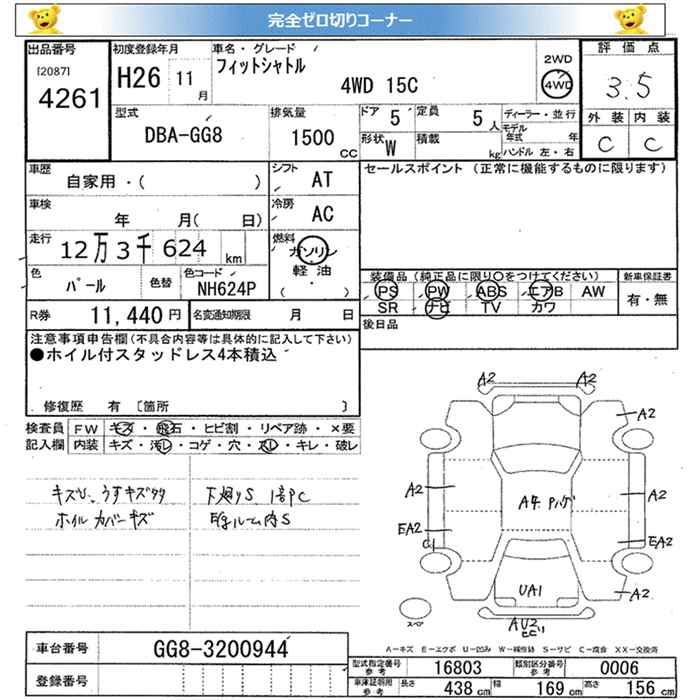 完全ゼロ切りコーナー
出品番号
[2087]
4261
初度登録年月
H26 11月
車名・グレード
フィットシャトル
4WD 15C
2WD
4WD
評価点
3.5
外装 内装
C C
型式
DBA-GG8
排気量
1500 CC
ドア 5
定員 5人
形状 W
積載 kg
ディーラー・並行
モデル年式 年
ハンドル 左・右
車歴
自家用・( )
シフト AT
セールスポイント (正常に機能するものに限ります)
車検
年 月( 日)
冷房 AC
走行
12万3千624km
燃料
ガソリン
軽油
( ・ )
色
パール
色替
色コード
NH624P
装備品 (純正品に限り○をつけてください)
PS PW ABS エアB AW
SR ナビ TV カワ
新車保証書
有・無
R券 11,440円
名変通知期限 月 日
後日品
注意事項申告欄(不具合内容等は具体的に記入して下さい)
●ホイル付スタッドレス4本積込
修復歴 有 [箇所 ]
検査員
記入欄
FW キズ・飛石・ヒビ割・リペア跡・×要
内装 キズ・汚レ・コゲ・穴・スレ・キレ・破レ
ホイルカバーキズ
A2 A2
A2
A2 A2
EA2 EA2
A2
UA1
スペア
A-キズ E-エクボ U-凹み W-補修跡 S-サビ C-腐食 XX-交換済
車台番号 GG8-3200944
登録番号
型式指定番号 参考 16803
類別区分番号 参考 0006
車庫証明用 参考 長さ 438cm 幅 169cm 高さ 156cm